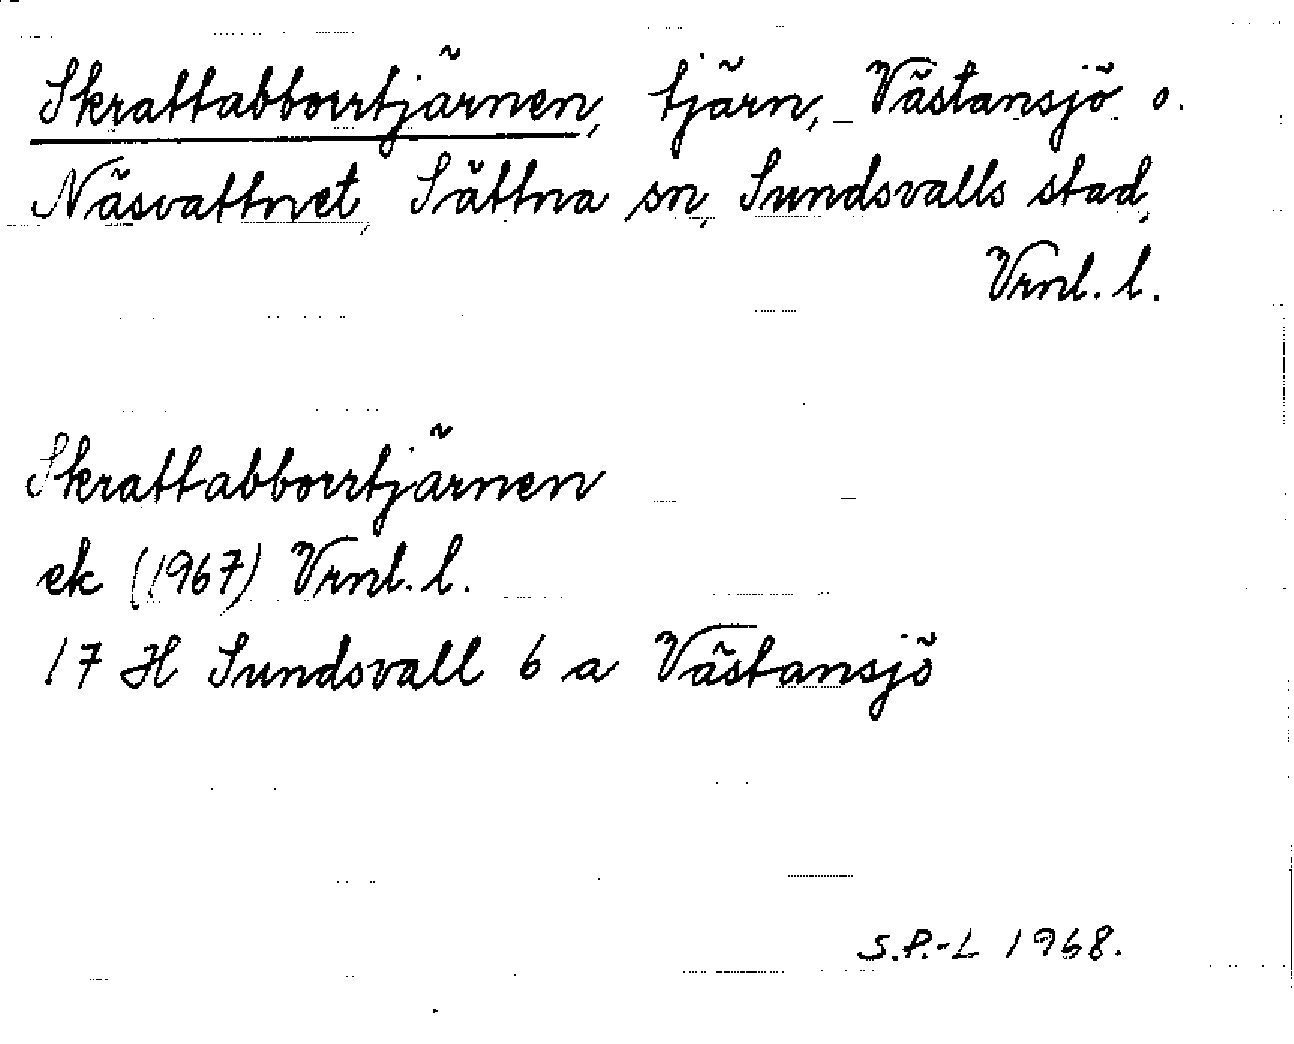 Skrattabborrtjärnen, tjärn, Västansjö o.
Näsvattnet, Sättna sn, Sundsvalls stad,
Vrnl. l.
Skrattabborrtjärnen
ek (1967) Vrnl. l.
17 H Sundsvall 6 a Västansjö
S.P.-L 1968.